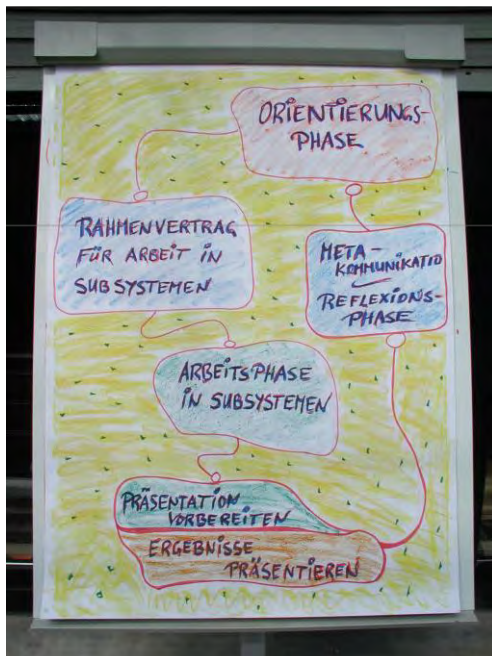 ORIENTIERUNGS-
PHASE
RAHMENVERTRAG
FÜR ARBEIT IN
SUBSYSTEMEN
META-
KOMMUNIKATIO
REFLEXIONS-
PHASE
ARBEITSPHASE
IN SUBSYSTEMEN
PRÄSENTATION
VORBEREITEN
ERGEBNISSE
PRÄSENTIEREN